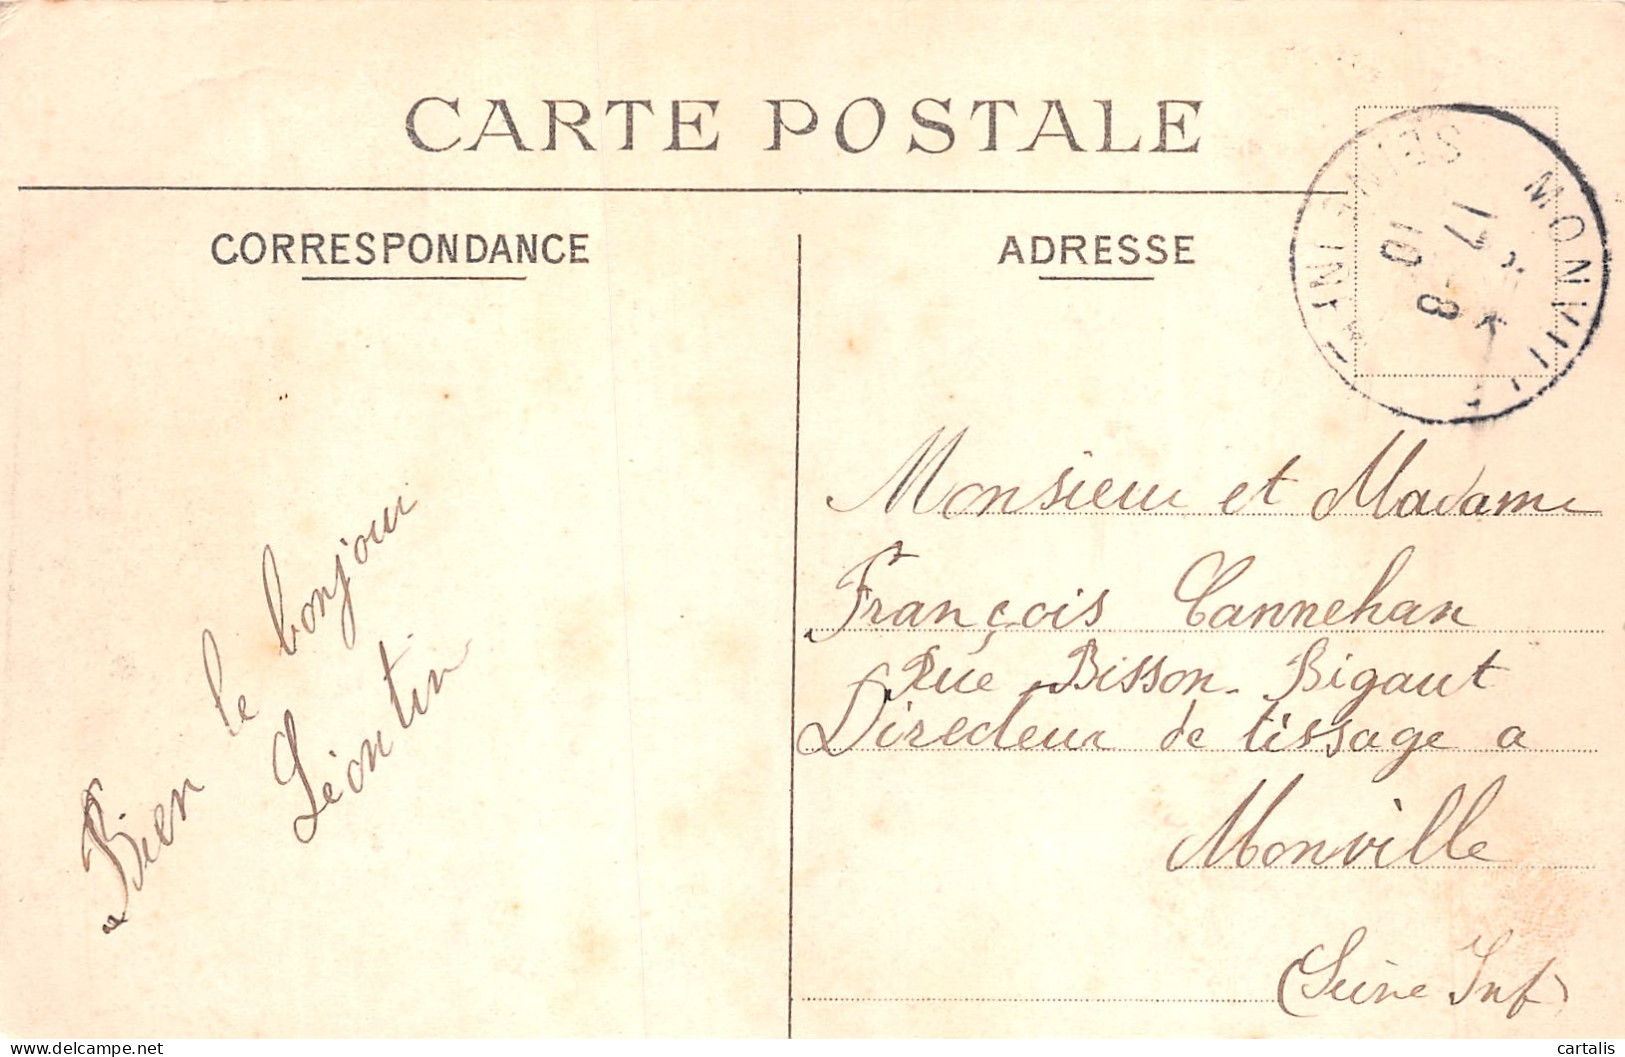 CARTE POSTALE
CORRESPONDANCE
ADRESSE
MONVILLE
SEINE INFRE
17 - 8
10
Bien le bonjour
Léontin
Monsieur et Madame
François Cannehan
Rue Bisson-Bigaut
Directeur de tissage a
Monville
(Seine Inf)
delcampe.net
cartalis